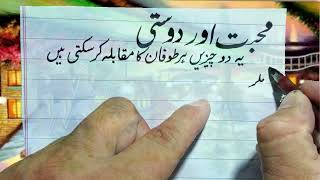 محبت اور دوستی
یہ دو چیزیں ہر طوفان کا مقابلہ کرسکتی ہیں
ملر